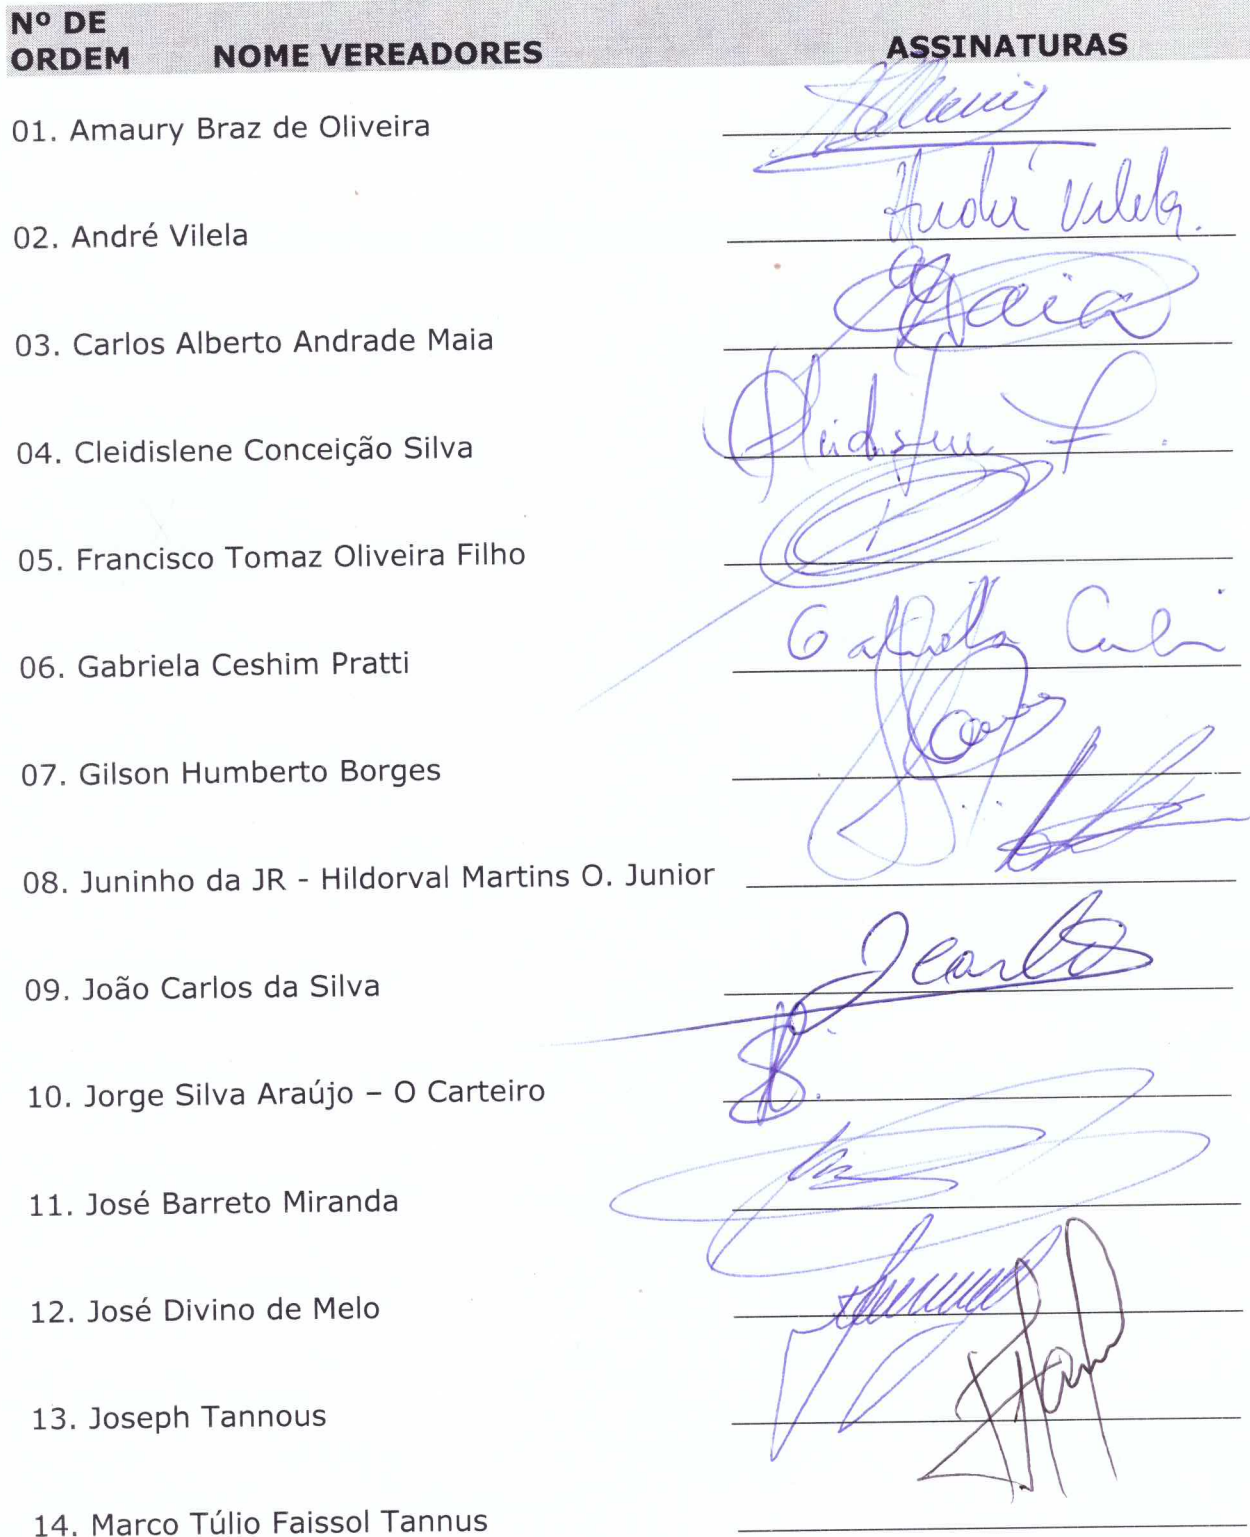 Nº DE
ORDEM NOME VEREADORES ASSINATURAS
01. Amaury Braz de Oliveira
02. André Vilela André Vilela.
03. Carlos Alberto Andrade Maia Maia
04. Cleidislene Conceição Silva
05. Francisco Tomaz Oliveira Filho
06. Gabriela Ceshim Pratti Gabriela
07. Gilson Humberto Borges
08. Juninho da JR - Hildorval Martins O. Junior
09. João Carlos da Silva JCarlos
10. Jorge Silva Araújo – O Carteiro
11. José Barreto Miranda
12. José Divino de Melo
13. Joseph Tannous
14. Marco Túlio Faissol Tannus